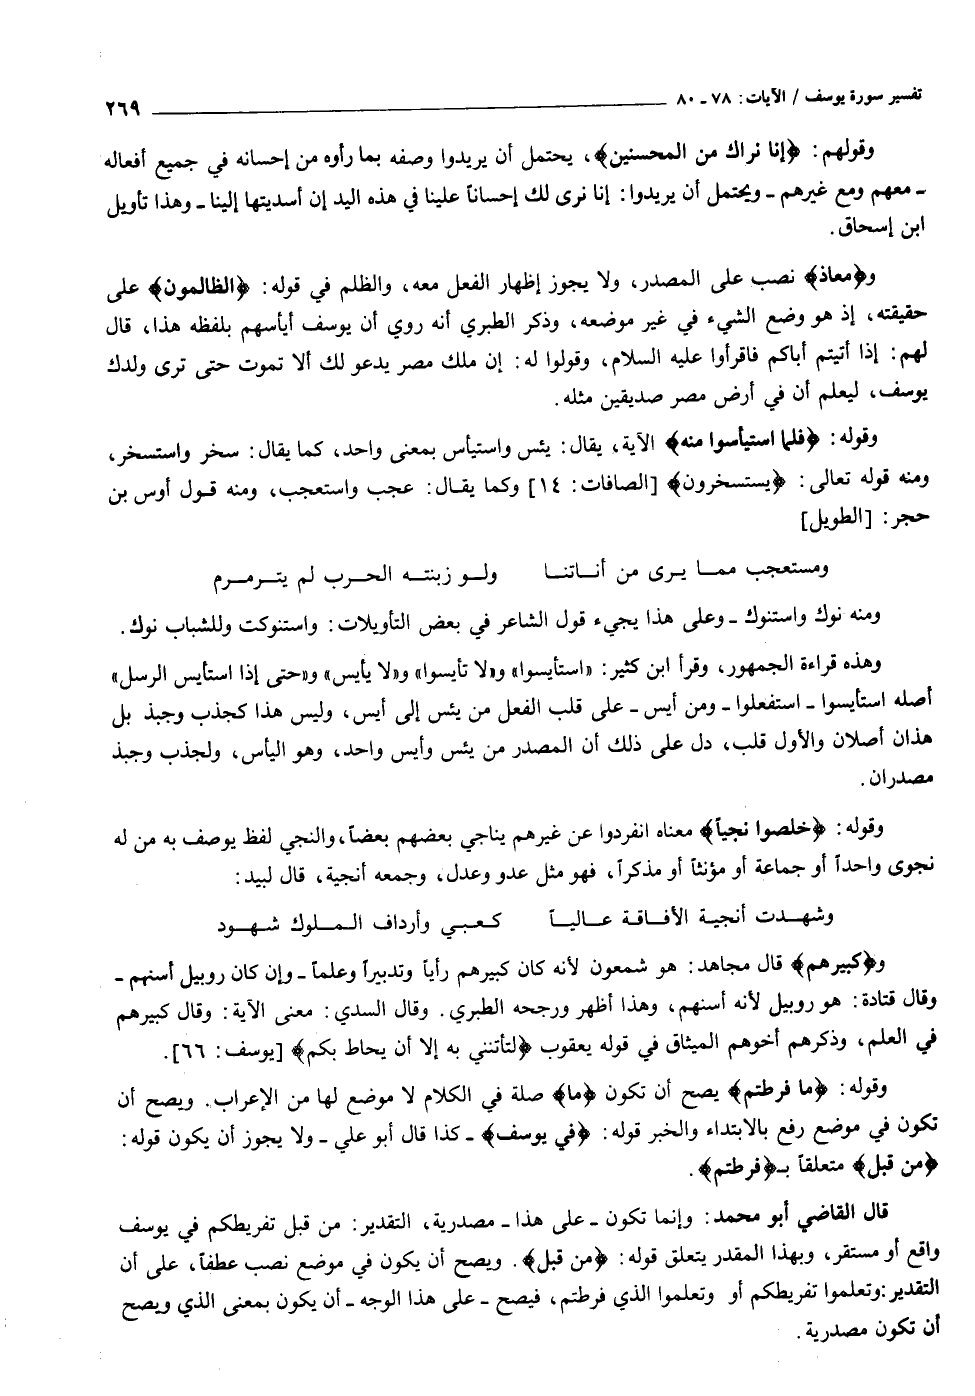 تفسير سورة يوسف / الآيات: ٧٨ ـ ٨٠ ٢٦٩
وقولهم: ﴿إنا نراك من المحسنين﴾، يحتمل أن يريدوا وصفه بما رأوه من إحسانه في جميع أفعاله
ـ معهم ومع غيرهم ـ ويحتمل أن يريدوا: إنا نرى لك إحساناً علينا في هذه اليد إن أسديتها إلينا ـ وهذا تأويل
ابن إسحاق.
و﴿معاذ﴾ نصب على المصدر، ولا يجوز إظهار الفعل معه، والظلم في قوله: ﴿الظالمون﴾ على
حقيقته، إذ هو وضع الشيء في غير موضعه، وذكر الطبري أنه روي أن يوسف أيأسهم بلفظه هذا، قال
لهم: إذا أتيتم أباكم فاقرأوا عليه السلام، وقولوا له: إن ملك مصر يدعو لك ألا تموت حتى ترى ولدك
يوسف، ليعلم أن في أرض مصر صديقين مثله.
وقوله: ﴿فلما استيأسوا منه﴾ الآية، يقال: يئس واستيأس بمعنى واحد، كما يقال: سخر واستسخر،
ومنه قوله تعالى: ﴿يستسخرون﴾ [الصافات: ١٤] وكما يقال: عجب واستعجب، ومنه قول أوس بن
حجر: [الطويل]
ومستعجب مما يرى من أناتنا ولو زبنته الحرب لم يترمرم
ومنه نوك واستنوك ـ وعلى هذا يجيء قول الشاعر في بعض التأويلات: واستنوكت وللشباب نوك.
وهذه قراءة الجمهور، وقرأ ابن كثير: «استأيسوا» و«لا تأيسوا» و«لا يأيس» و«حتى إذا استأيس الرسل»
أصله استأيسوا ـ استفعلوا ـ ومن أيس ـ على قلب الفعل من يئس إلى أيس، وليس هذا كجذب وجبذ بل
هذان أصلان والأول قلب، دل على ذلك أن المصدر من يئس وأيس واحد، وهو اليأس، ولجذب وجبذ
مصدران.
وقوله: ﴿خلصوا نجياً﴾ معناه انفردوا عن غيرهم يناجي بعضهم بعضاً، والنجي لفظ يوصف به من له
نجوى واحداً أو جماعة أو مؤنثاً أو مذكراً، فهو مثل عدو وعدل، وجمعه أنجية، قال لبيد:
وشهدت أنجية الأفاقة عالياً كعبي وأرداف الملوك شهود
و﴿كبيرهم﴾ قال مجاهد: هو شمعون لأنه كان كبيرهم رأياً وتدبيراً وعلماً ـ وإن كان روبيل أسنهم ـ
وقال قتادة: هو روبيل لأنه أسنهم، وهذا أظهر ورجحه الطبري. وقال السدي: معنى الآية: وقال كبيرهم
في العلم، وذكرهم أخوهم الميثاق في قوله يعقوب ﴿لتأتنني به إلا أن يحاط بكم﴾ [يوسف: ٦٦].
وقوله: ﴿ما فرطتم﴾ يصح أن تكون ﴿ما﴾ صلة في الكلام لا موضع لها من الإعراب. ويصح أن
تكون في موضع رفع بالابتداء والخبر قوله: ﴿في يوسف﴾ ـ كذا قال أبو علي ـ ولا يجوز أن يكون قوله:
﴿من قبل﴾ متعلقاً بـ﴿فرطتم﴾.
قال القاضي أبو محمد: وإنما تكون ـ على هذا ـ مصدرية، التقدير: من قبل تفريطكم في يوسف
واقع أو مستقر، وبهذا المقدر يتعلق قوله: ﴿من قبل﴾. ويصح أن يكون في موضع نصب عطفاً، على أن
التقدير: وتعلموا تفريطكم أو وتعلموا الذي فرطتم، فيصح ـ على هذا الوجه ـ أن يكون بمعنى الذي ويصح
أن تكون مصدرية.